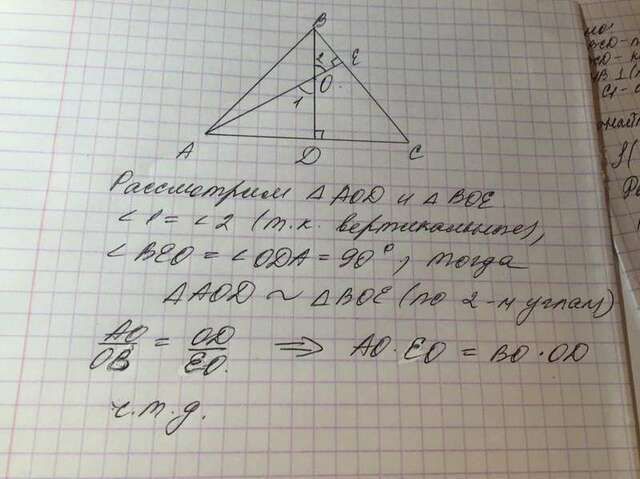 B
2
E
O
1
A
D
C
Рассмотрим △AOD и △BOE.
∠1 = ∠2 (т.к. вертикальные),
∠BEO = ∠ODA = 90°, тогда
△AOD ~ △BOE (по 2-м углам)
AO/OB = OD/EO. ⇒ AO · EO = BO · OD
ч.т.д.